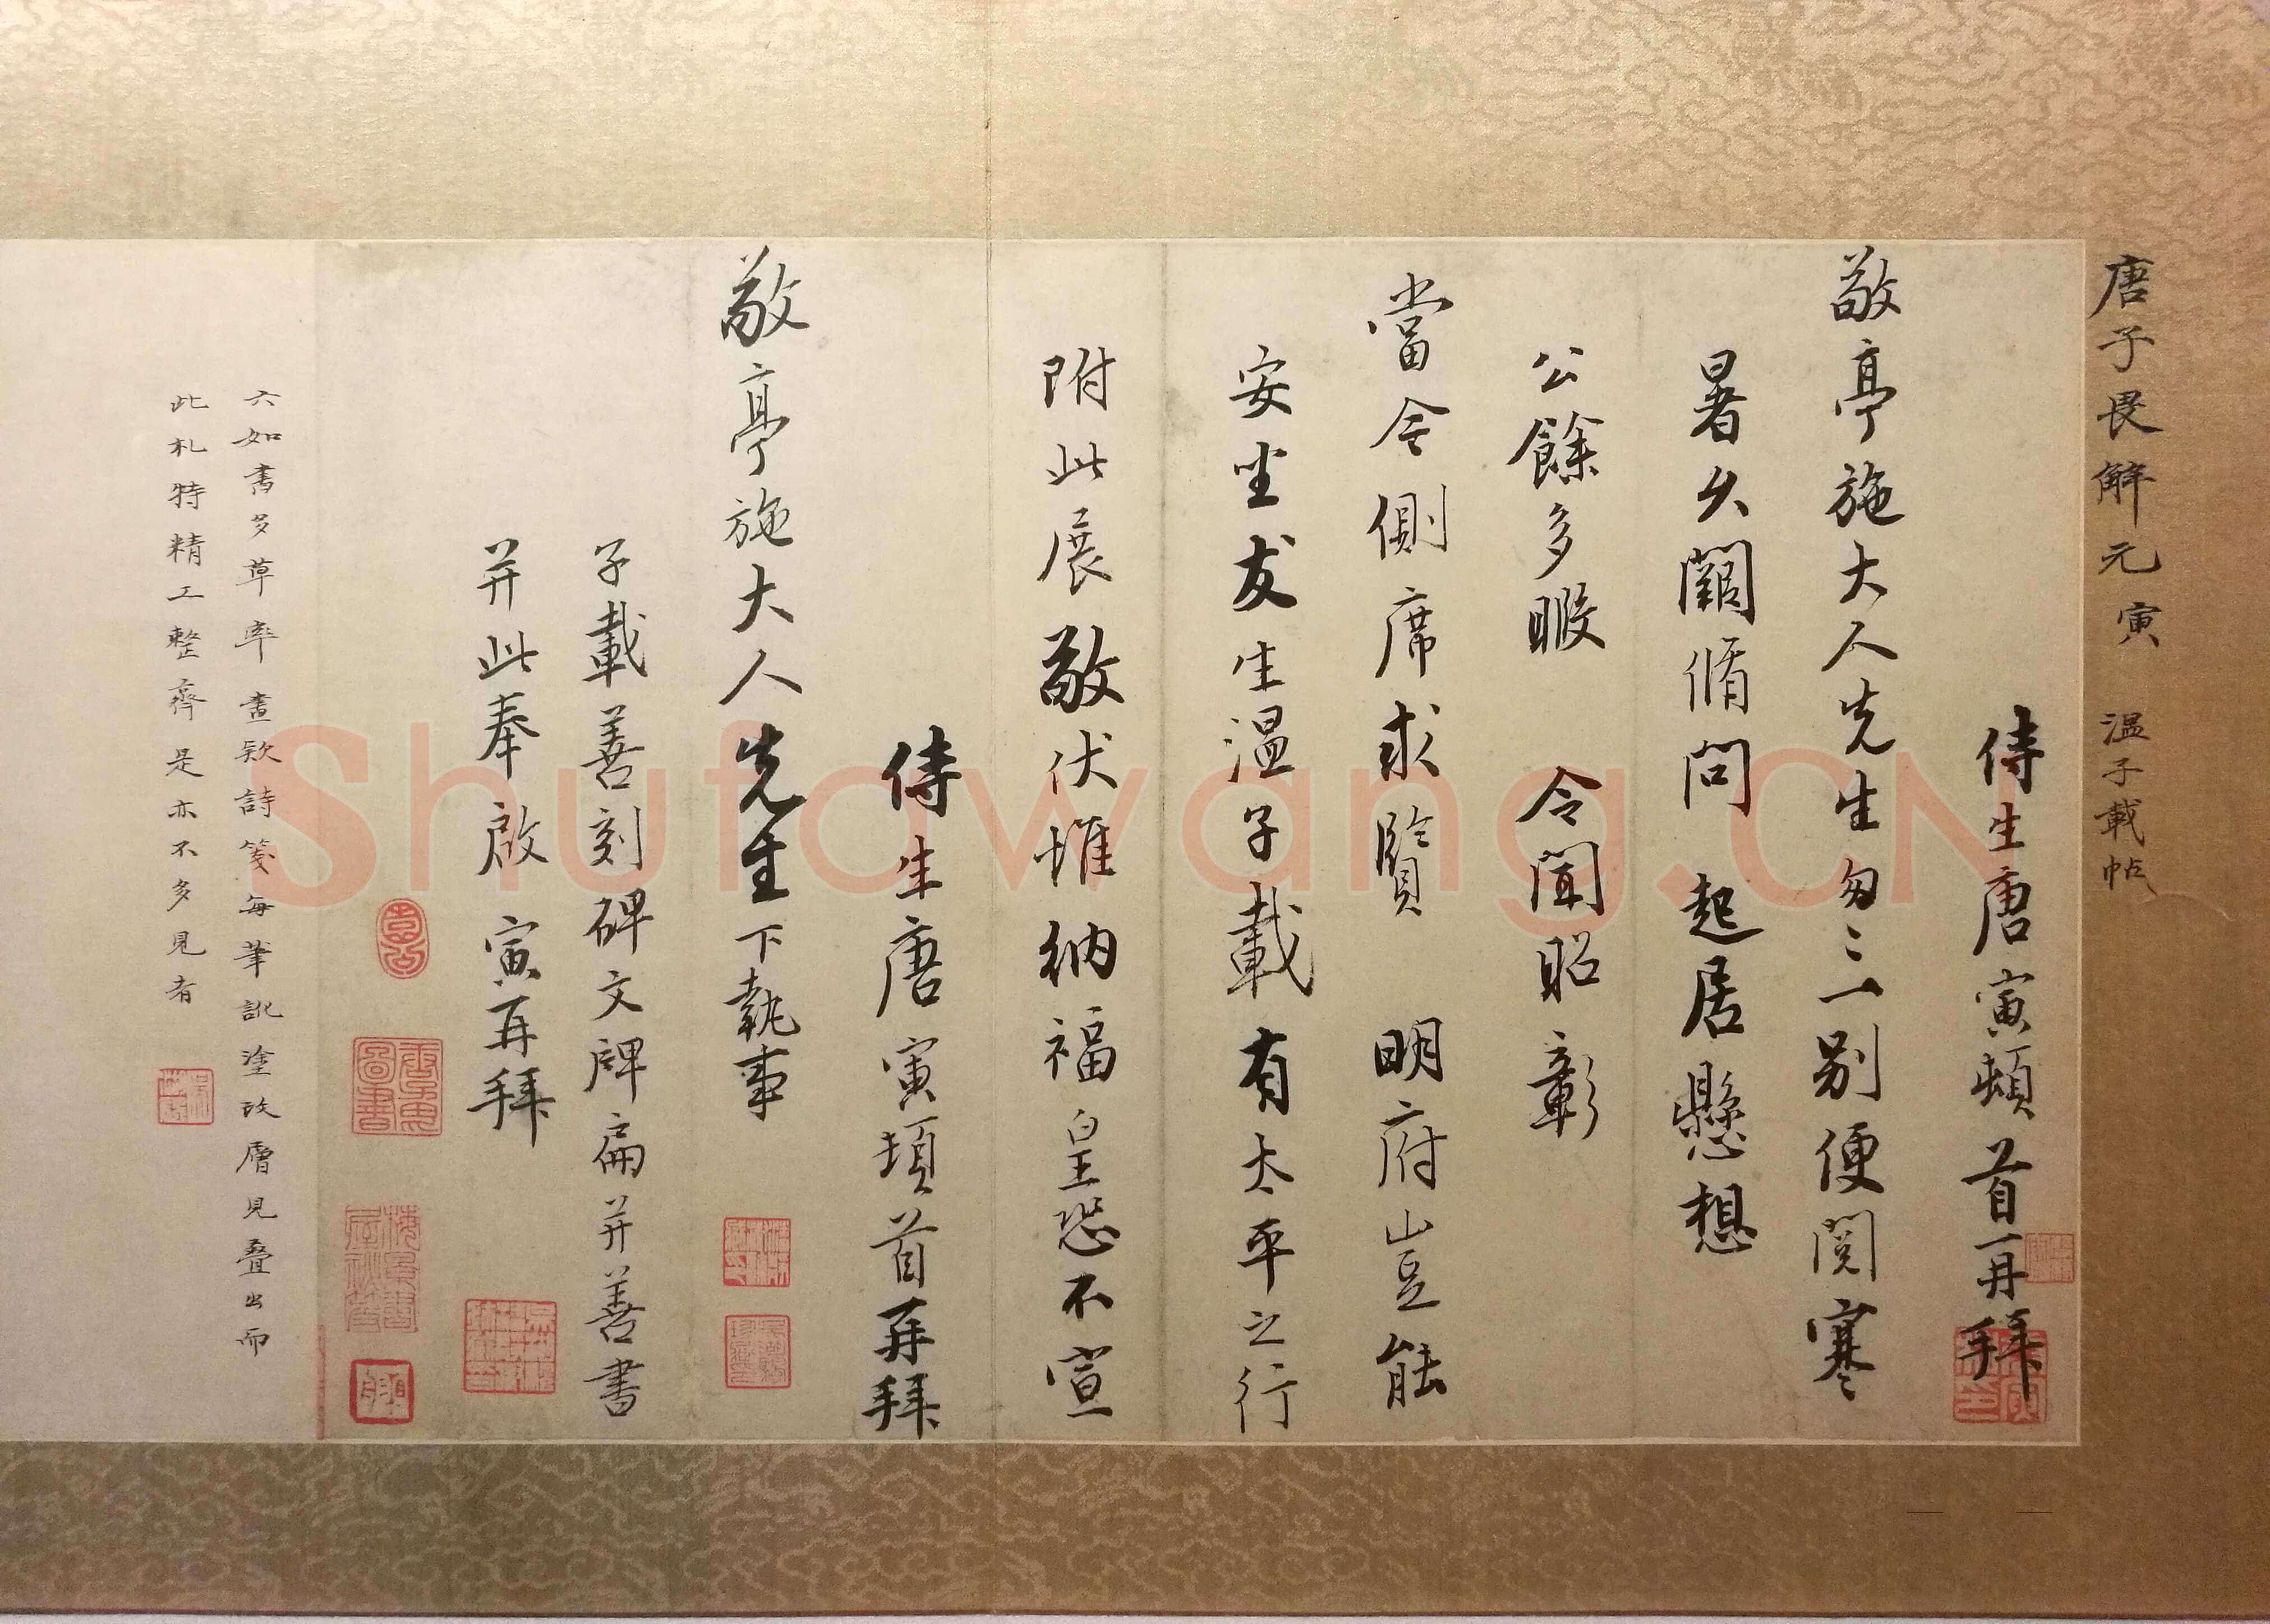 唐子畏解元寅 温子載帖
侍生唐寅頓首再拜
敬亭施大人先生匆〻一别便閲寒
暑久闊脩問 起居懸想
公餘多暇 令聞昭彰
當今側席求賢 明府豈能
安坐友生温子載有太平之行
附此展敬伏惟納福皇恐不宣
侍生唐寅頓首再拜
敬亭施大人先生下執事
子載善刻碑文牌扁并善書
并此奉啟 寅再拜
六如書多草率畫欵詩箋每筆訛塗改層見叠出而
此札特精工整齊是亦不多見者
Shufawang.CN